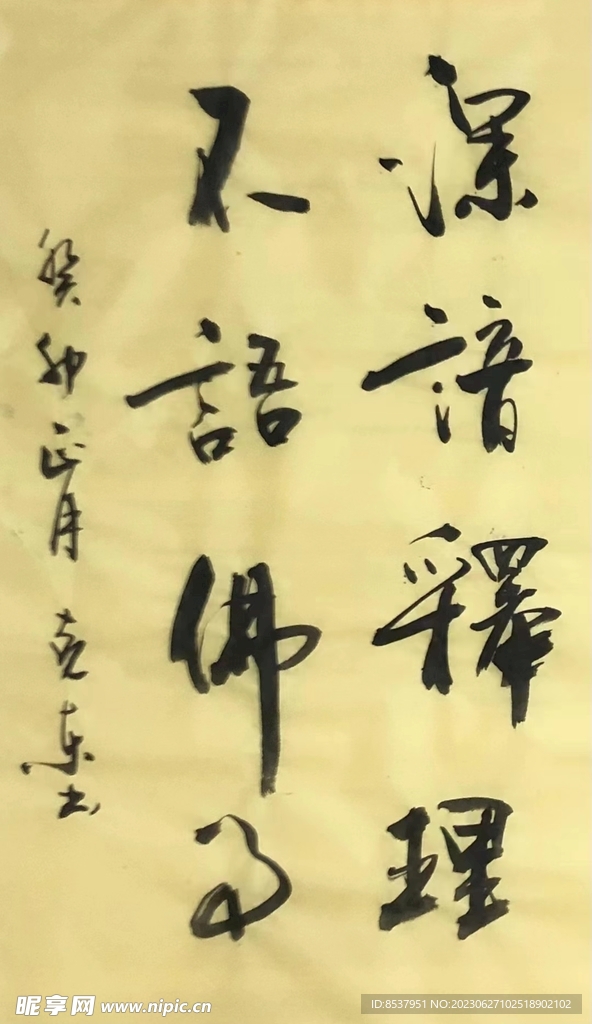 深諳釋理
不語佛事
癸卯正月 克東书
昵享网 www.nipic.cn
ID:8537951 NO:20230627102518902102